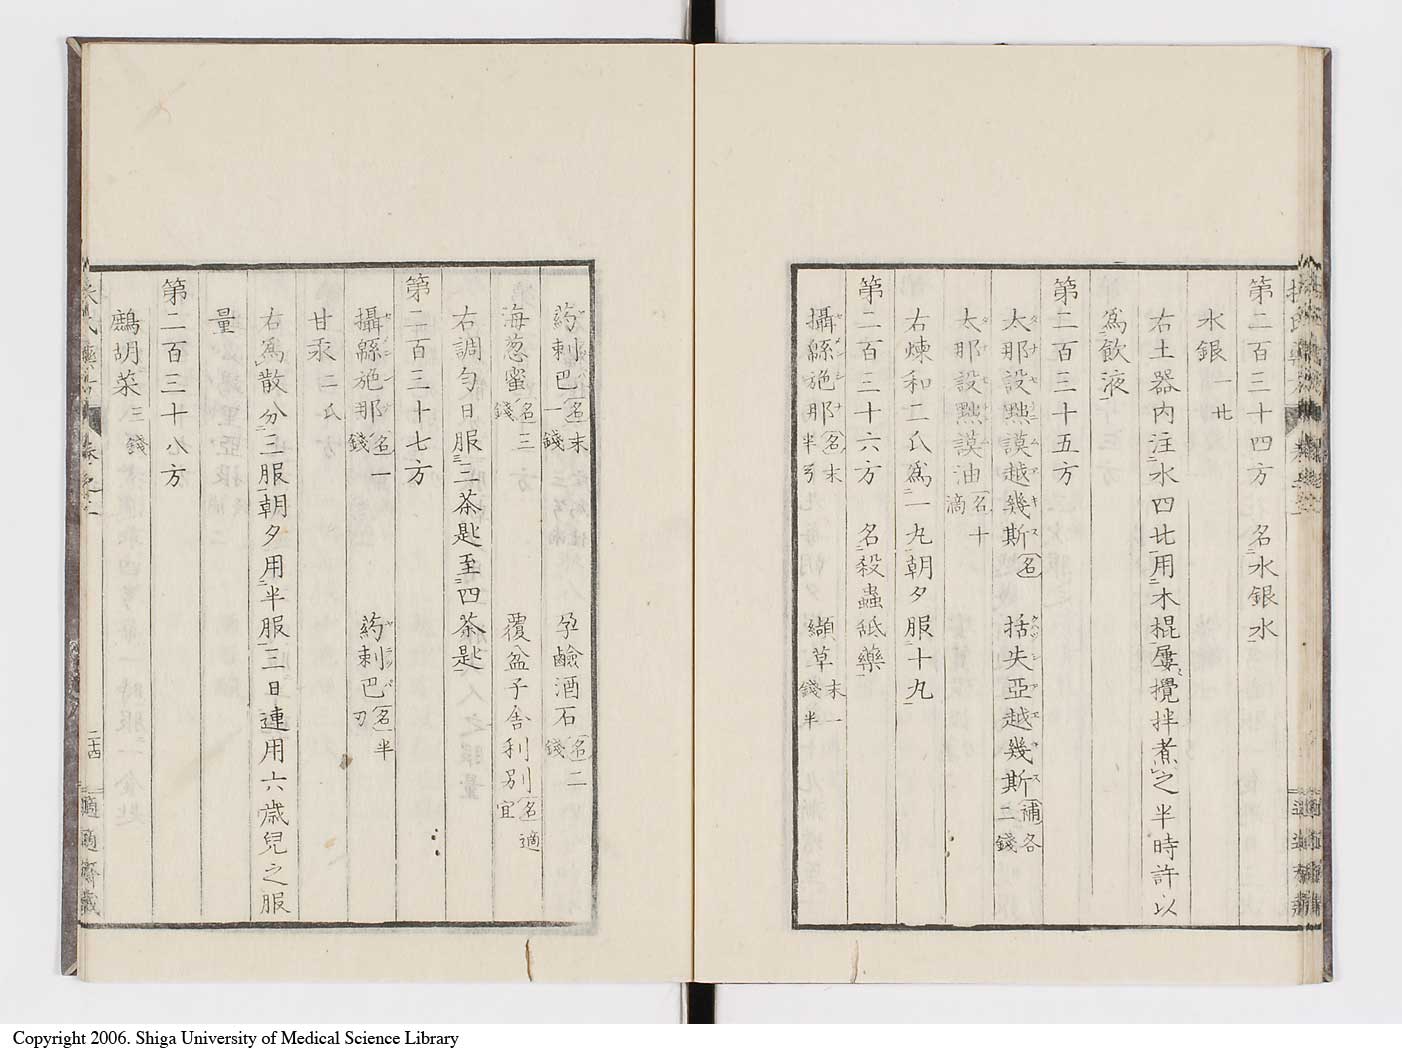 第二百三十四方　名水銀水
水銀一㐂
右土器内注水四㐂用木棍屡攪拌煮之半時許以
為飲液
第二百三十五方
太那設㸃謨越幾斯名　括失亞越幾斯補各二錢
太那設㸃謨油名十滴
右煉和二瓜為一丸朝夕服十丸
第二百三十六方　名殺蟲舐藥
攝緜施那名末半弓　纈草末一錢半
葯剌巴名末一錢　孕鹼酒石名二錢
海葱蜜名三錢　覆盆子舎利別名適宜
右調勻日服三茶匙至四茶匙
第二百三十七方
攝緜施那名一錢　葯剌巴名半刃
甘汞二瓜
右為散分三服朝夕用半服三日連用六歳兒之服
量
第二百三十八方
鷓胡菜三錢
二十四
適適齋藏
Copyright 2006. Shiga University of Medical Science Library